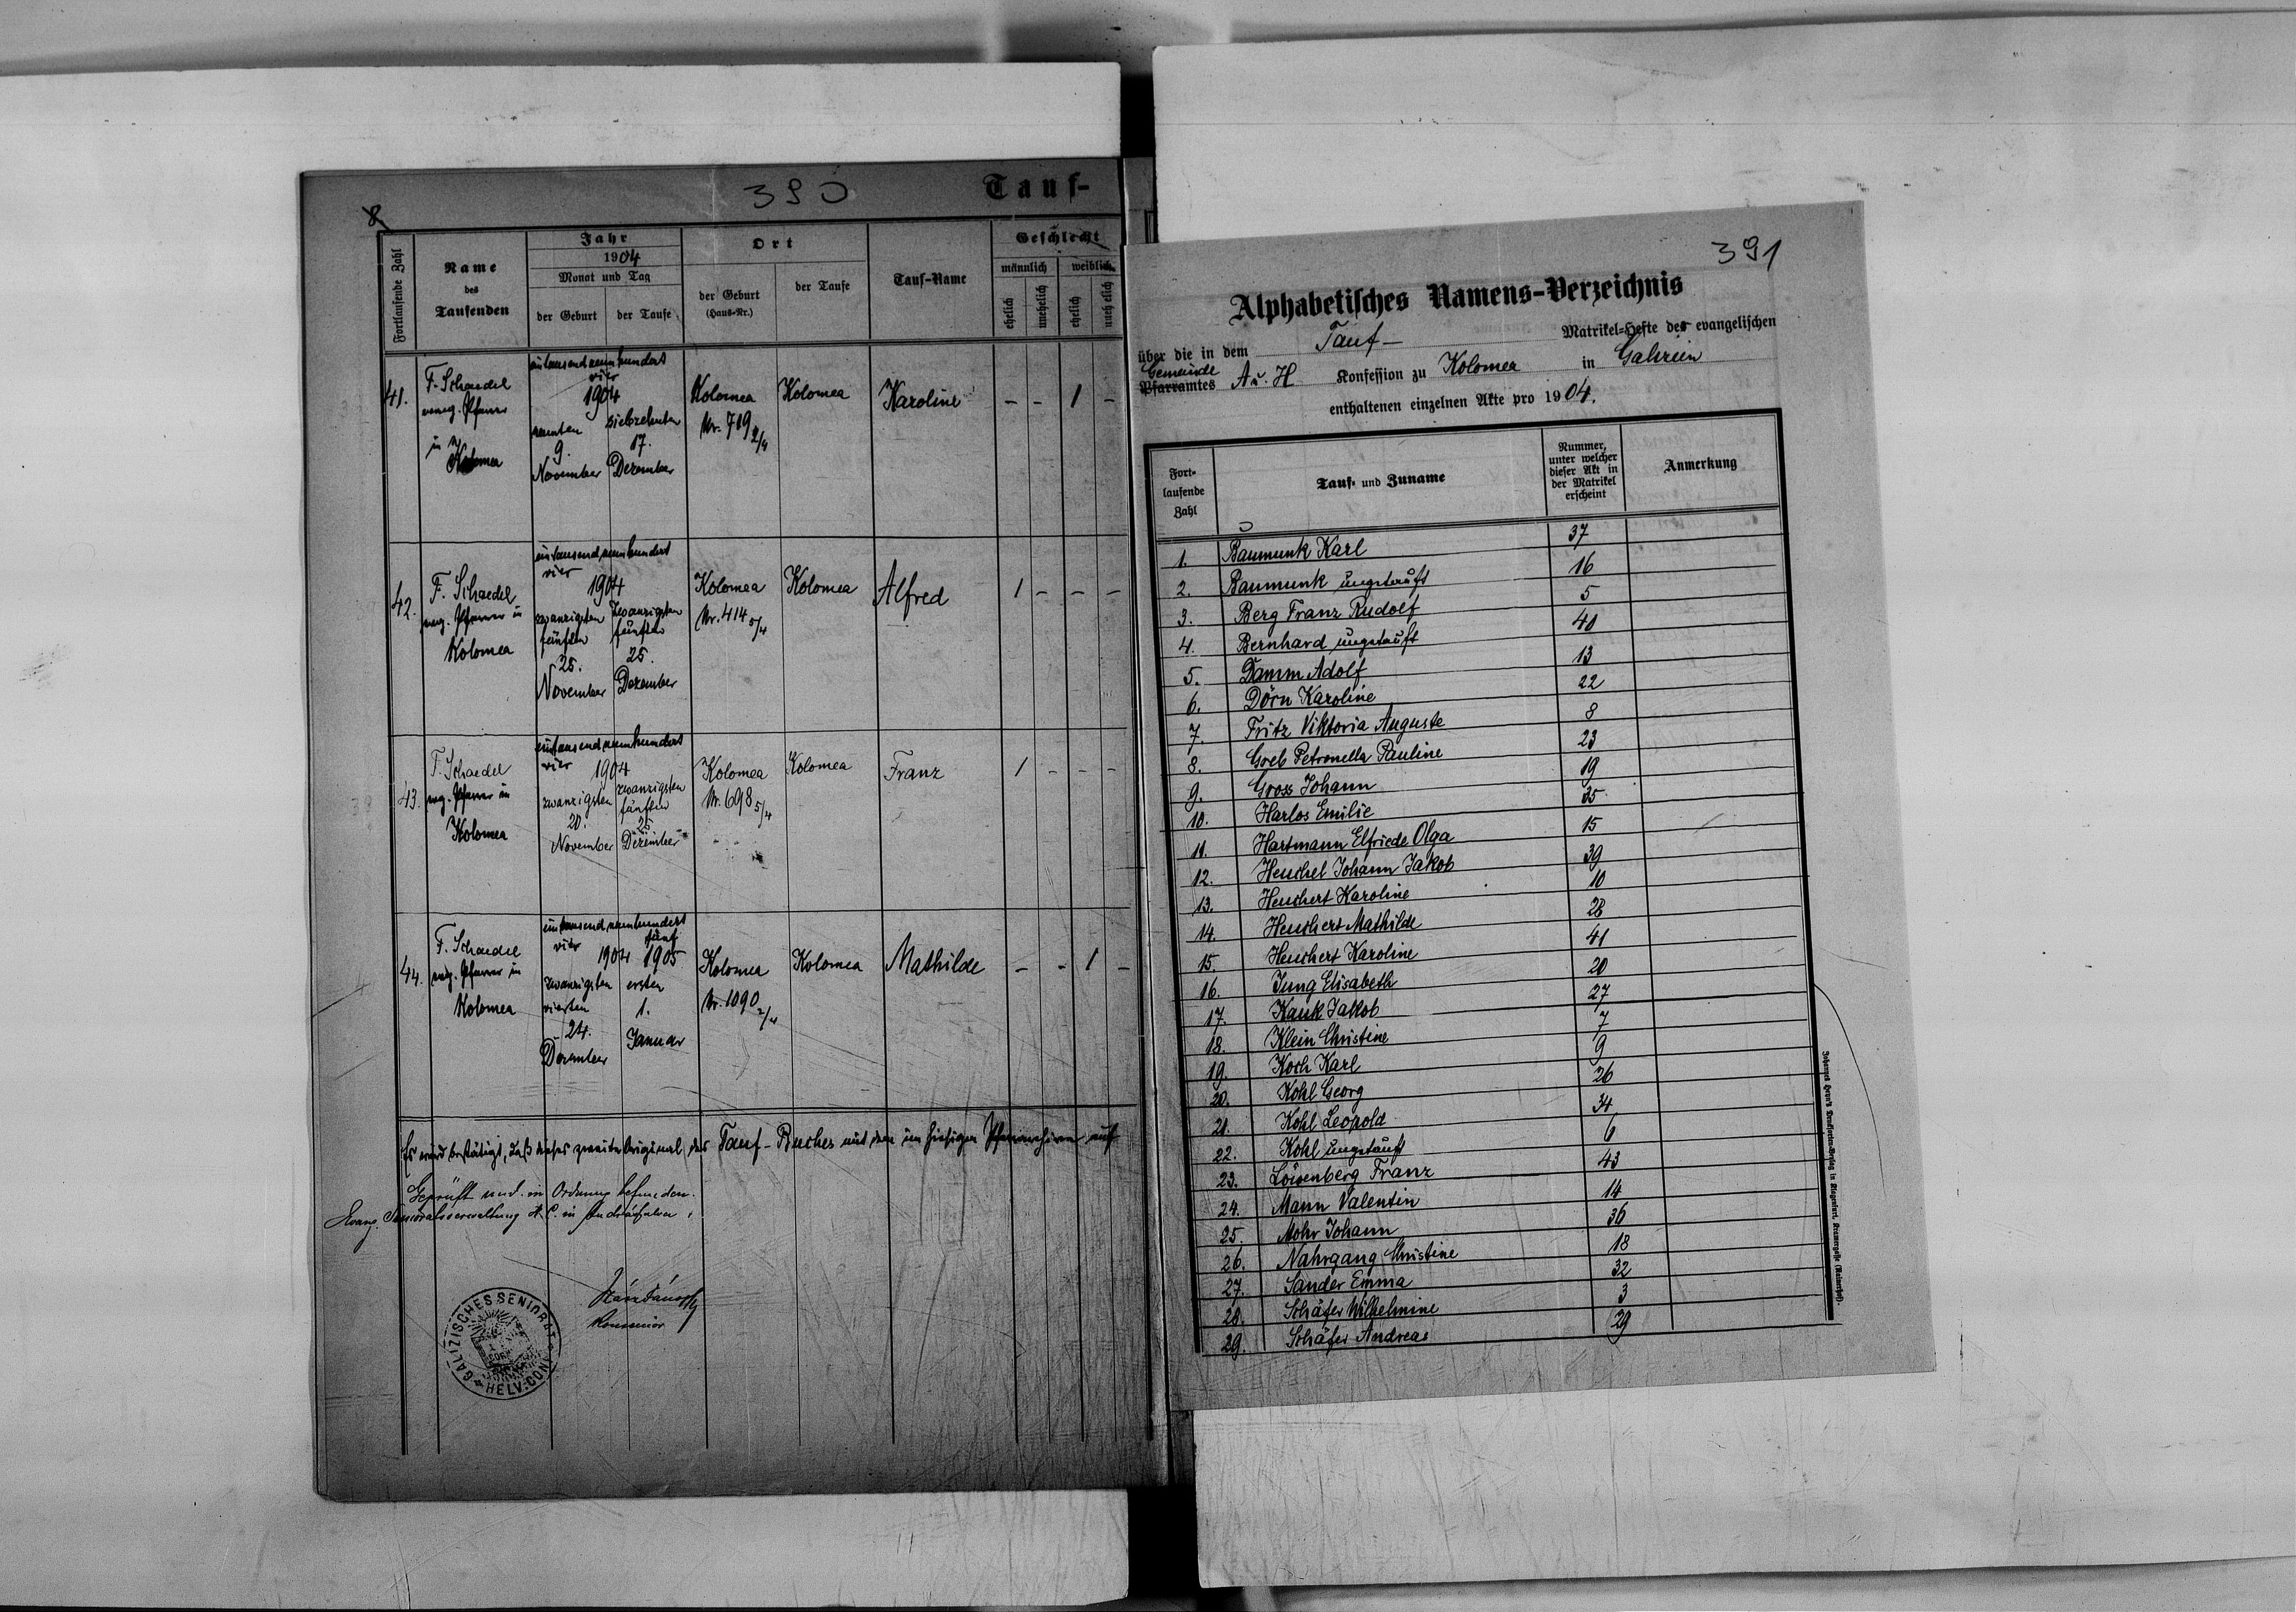 390
Tauf-
8
Fortlaufende Zahl
Name
des
Taufenden
Jahr
1904
Monat und Tag
der Geburt
der Taufe
Ort
der Geburt
(Haus-Nr.)
der Taufe
Tauf-Name
Geschlecht
männlich
weiblich
ehelich
unehelich
ehelich
unehelich
41.
F. Schaedel
evang. Pfarrer
in
Kolomea
eintausendneunhundert
vier
1904
neunten siebzehnten
9. 17.
November Dezember
Kolomea
Nr. 719 2/4
Kolomea
Karoline
- - 1 -
42.
F. Schaedel
evang. Pfarrer in
Kolomea
eintausendneunhundert
vier
1904
zwanzigsten zwanzigsten
fünften fünften
25. 25.
November Dezember
Kolomea
Nr. 414 5/4
Kolomea
Alfred
1 - - -
43.
F. Schaedel
evg. Pfarrer in
Kolomea
eintausendneunhundert
vier 1904
zwanzigsten zwanzigsten
fünften
20. 25.
November Dezember
Kolomea
Nr. 698 5/4
Kolomea
Franz
1 - - -
44.
F. Schaedel
evg. Pfarrer in
Kolomea
eintausendneunhundert
vier fünf
1904 1905
zwanzigsten ersten
vierten 1.
24.
Dezember Januar
Kolomea
Nr. 1090 2/4
Kolomea
Mathilde
- - 1 -
Es wird bestätigt, daß dieses zweite Original des Tauf-Buches mit dem im hiesigen Pfarrarchive auf
Geprüft und in Ordnung befunden.
Evang. Senioratsverwaltung H. C. in
Konsenior
GALIZISCHES SENIORAT HELV. CONF.
391
Alphabetisches Namens-Verzeichnis
über die in dem Tauf- Matrikel-Hefte der evangelischen
Gemeinde
Pfarramtes A u. H Konfession zu Kolomea in Galizien
enthaltenen einzelnen Akte pro 1904.
Fort-
laufende
Zahl
Tauf- und Zuname
Nummer,
unter welcher
dieser Akt in
der Matrikel
erscheint
Anmerkung
1. Baumunk Karl 37
2. Baumunk ungetauft 16
3. Berg Franz Rudolf 5
4. Bernhard ungetauft 40
5. Damm Adolf 13
6. Dörn Karoline 22
7. Fritz Viktoria Auguste 8
8. Greb Petronella Pauline 23
9. Gross Johann 19
10. Harlos Emilie 35
11. Hartmann Elfriede Olga 15
12. Heuchel Johann Jakob 39
13. Heuchert Karoline 10
14. Heuchert Mathilde 28
15. Heuchert Karoline 41
16. Jung Elisabeth 20
17. Kauk Jakob 27
18. Klein Christine 7
19. Koch Karl 9
20. Kohl Georg 26
21. Kohl Leopold 34
22. Kohl ungetauft 6
23. Löwenberg Franz 43
24. Mann Valentin 14
25. Mohr Johann 36
26. Nahrgang Christine 18
27. Sander Emma 32
28. Schäfer Wilhelmine 3
29. Schäfer Andreas 29